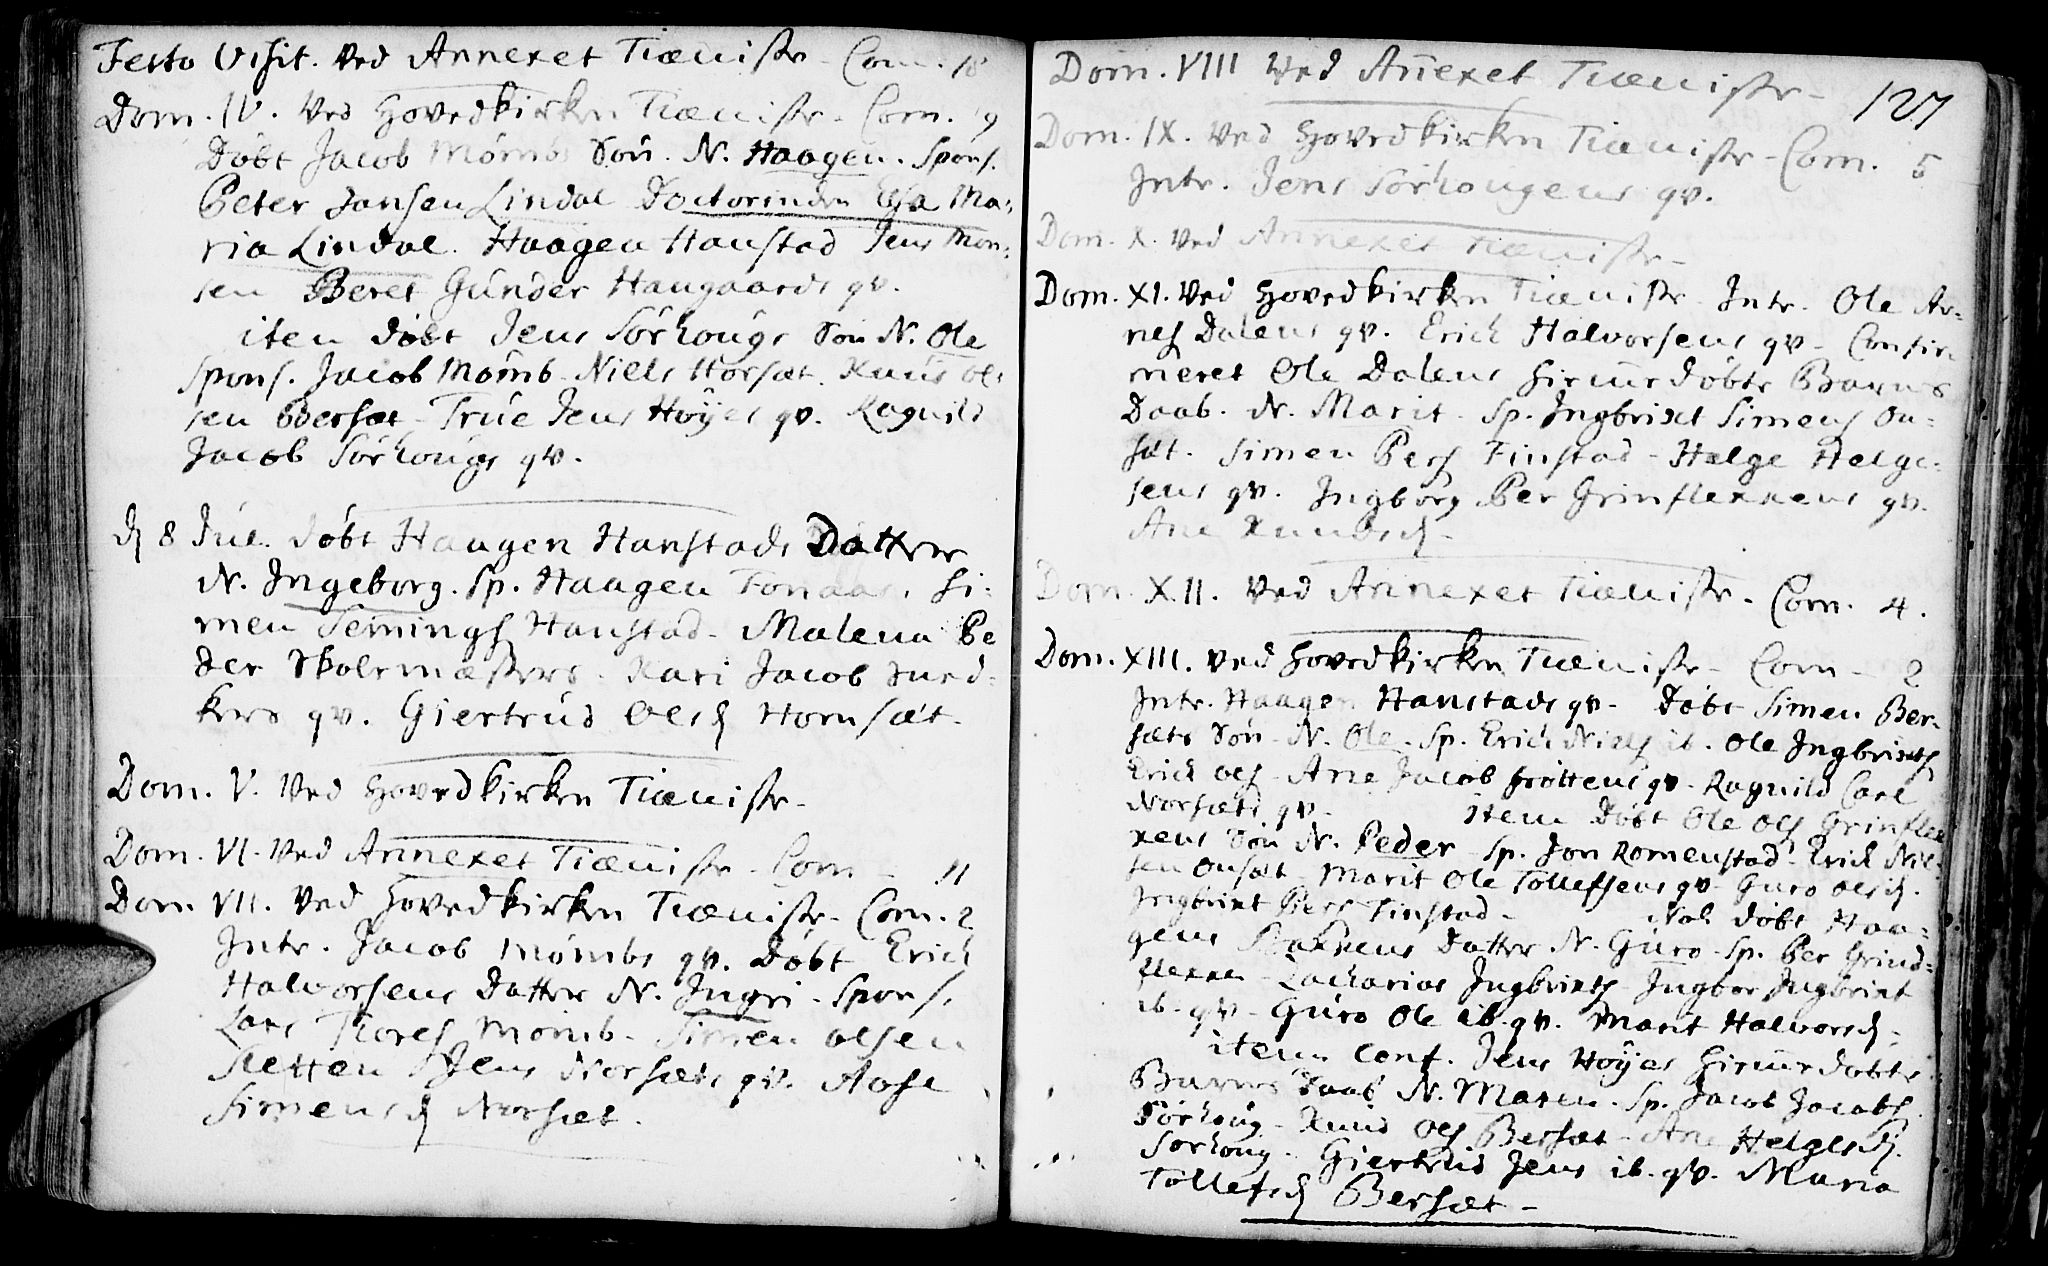 Festo Visit. Ved Annexet Tieniste - Com. 18
Dom. IV. Ved Hovedkirken Tieniste - Com. 9
Döbt Jacob Mömbs Sön. N. Haagen. Spons.
Peter Jansen Lindal Doctorinden Elsa Ma-
ria Lindal. Haagen Hanstad Jens Mon-
sen Beret Gunder Haugaards qv.
iten döbt Jens Sörhougs Sön N. Ole
Spons. Jacob Mömb - Niels Horsæt. Knud Ol-
sen Bersæt - True Jens Höÿes qv. Ragnild
Jacob Sörhougs qv.
d 8 Jul. döbt Haagen Hanstads Datter
N. Ingeborg. Sp. Haagen Fonaas. Si-
men Semings Hanstad - Malena Pe
der Skolemæsters - Kari Jacob Sned-
kers qv. Giertrud Olsd Hornsæt -
Dom. V. Ved Hovedkirken Tieniste -
Dom. VI. Ved Annexet Tieniste - Com - 11
Dom. VII. Ved Hovedkirken Tieniste - Com. 2
Intr. Jacob Mömbs qv. Döbt Erich
Halvorsens Datter N. Ingri - Spons.
Lars Tores Mömb - Simen Olsen
Sletten Jens Norsæts qv. Aase
Simensd Norsæt.
127
Dom. VIII Ved Anexet Tieniste -
Dom. IX. Ved Hovedkirken Tieniste - Com. 5
Intr. Jens Sörhougens qv.
Dom. X. Ved Annexet Tieniste -
Dom. XI. Ved Hovedkirken Tieniste Intr. Ole Ar-
nes Dalens qv. Erich Halvorsens qv - Confir
meret Ole Dalens hiemedöbte Barns
Daab. N. Marit - Sp. Ingbrict Simens On-
sæt. Simen Pers Finstad - Helge Helge-
sens qv. Ingborg Per Grinflexxens qv.
Ane Knudsd -
Dom. XII. Ved Annexet Tieniste - Com. 4.
Dom. XIII. Ved Hovedkirken Tieniste - Com - 2
Intr. Haagen Hanstads qv - Döbt Simen Ber-
sæts Sön - N. Ole - Sp. Erich Niels ib. Ole Ingbricts
Erich Ols - Ane Jacob Gröttens qv - Ragnild Carl
Norsæts qv - Item Döbt Ole Ols Grinflex
xens Sön N. Peder - Sp. Jon Romenstad - Erich Niel-
sen Onsæt - Marit Ole Tollefsens qv - Guro Olsd.
Ingbrict Pers Finstad - Noh döbt Haa-
gens Datter N. Guro - Sp. Per Grind-
flexxen - Zacharias Ingbricts - Ingbor Ingbrict
ib. qv - Guro Ole ib. qv. Marit Halvorsd -
item Conf. Jens Höÿes hiemedöbte
Barns Daab N. Maren - Sp. Jacob Jacobs
Sörhoug - Knud Ols Bersæt - Ane Helgesd.
Sörhoug - Giertrud Jens ib. qv. Maria
Tollefsd Bersæt -